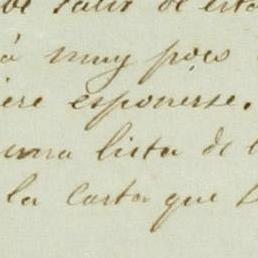 de salir de esta
á muy poco
ere esponerse.
una lista de l
la carta que